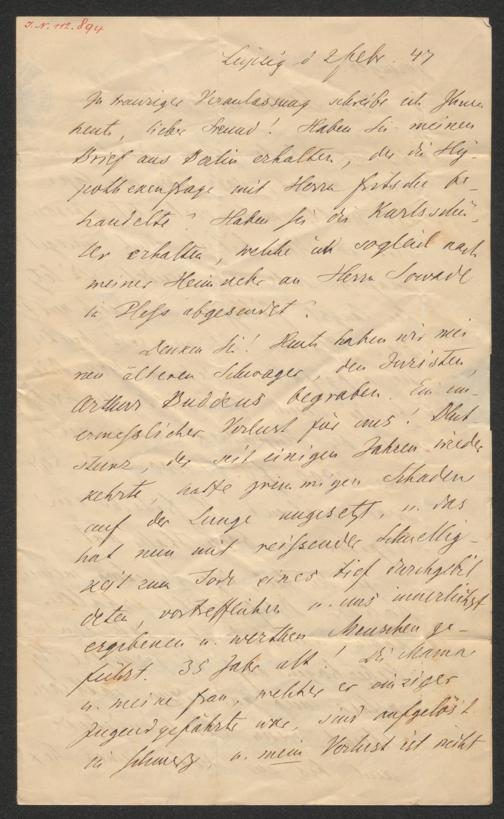 J.N. 112.894
Leipzig d 2 Febr. 47
In trauriger Veranlassung schreibe ich Ihnen
heut, lieber Freund! Haben Sie meinen
Brief aus Berlin erhalten, der die Hy-
pothekenfrage mit Herrn Fritsche be-
handelte? Haben Sie die Karlsschü-
ler erhalten, welche ich sogleich nach
meiner Heimkehr an Herrn Sowade
in Pless abgesendet?
Denken Sie! Heute haben wir mei
nen älteren Schwager, den Juristen
Arthur Buddeus begraben. Ein un-
ermesslicher Verlust für uns! Blut
sturz, der seit einigen Jahren wieder
kehrte, hatte grimmigen Schaden
auf der Lunge angesetzt, u. das
hat nun mit reissender Schnellig-
keit zum Tode eines tief durchgebil
deten, vortrefflichen u. uns unerlässt
ergebenen u. werthen Menschen ge-
führt. 35 Jahr alt! Die Mama
u. meine Frau, welcher er einziger
Jugendgefährte war, sind aufgelöst
in Schmerz, u. mein Verlust ist nicht